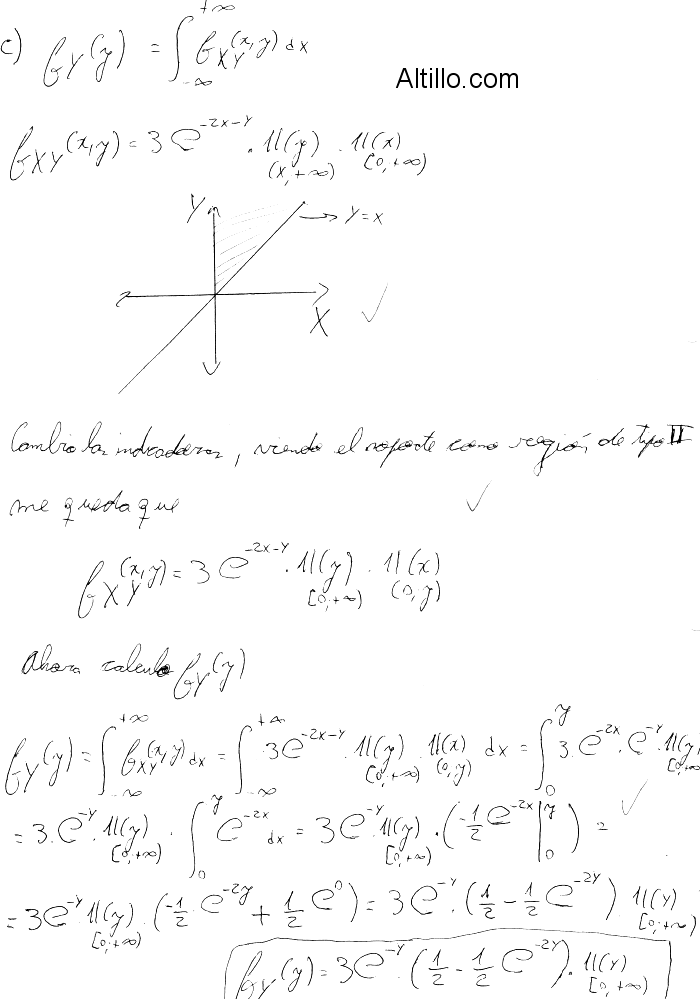 c) f_Y(y) = ∫_{-∞}^{+∞} f_{XY}(x,y) dx
Altillo.com
f_{XY}(x,y) = 3 e^{-2x-y} . 𝟙(y)_{(x,+∞)} . 𝟙(x)_{[0,+∞)}
Y
→ y=x
X
✓
Cambio las indicadoras, viendo el soporte como región de tipo II
me queda que ✓
f_{XY}(x,y) = 3 e^{-2x-y} . 𝟙(y)_{[0,+∞)} . 𝟙(x)_{(0,y)}
Ahora calculo f_Y(y)
f_Y(y) = ∫_{-∞}^{+∞} f_{XY}(x,y) dx = ∫_{-∞}^{+∞} 3e^{-2x-y} . 𝟙(y)_{[0,+∞)} . 𝟙(x)_{(0,y)} dx = ∫_0^y 3. e^{-2x} . e^{-y} . 𝟙(y)_{[0,+∞)}
= 3. e^{-y} . 𝟙(y)_{[0,+∞)} . ∫_0^y e^{-2x} dx = 3 e^{-y} . 𝟙(y)_{[0,+∞)} . (-1/2 e^{-2x} |_0^y) = ✓
= 3e^{-y} 𝟙(y)_{[0,+∞)} . (-1/2 . e^{-2y} + 1/2 e^0) = 3 e^{-y} . (1/2 - 1/2 e^{-2y}) . 𝟙(y)_{[0,+∞)}
f_Y(y) = 3e^{-y} . (1/2 - 1/2 e^{-2y}) . 𝟙(y)_{[0,+∞)}